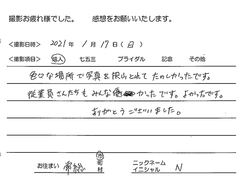 撮影お疲れ様でした。 感想をお願いいたします。
<撮影日時> 2021年 1月 17日(日)
<撮影項目> 成人 七五三 ブライダル 記念 その他
色々な場所で写真を撮れて たのしかったです。
従業員さんたちも みんな かったです。よかったです。
ありがとうございました。
お住まい 市 町 村 ニックネーム イニシャル N